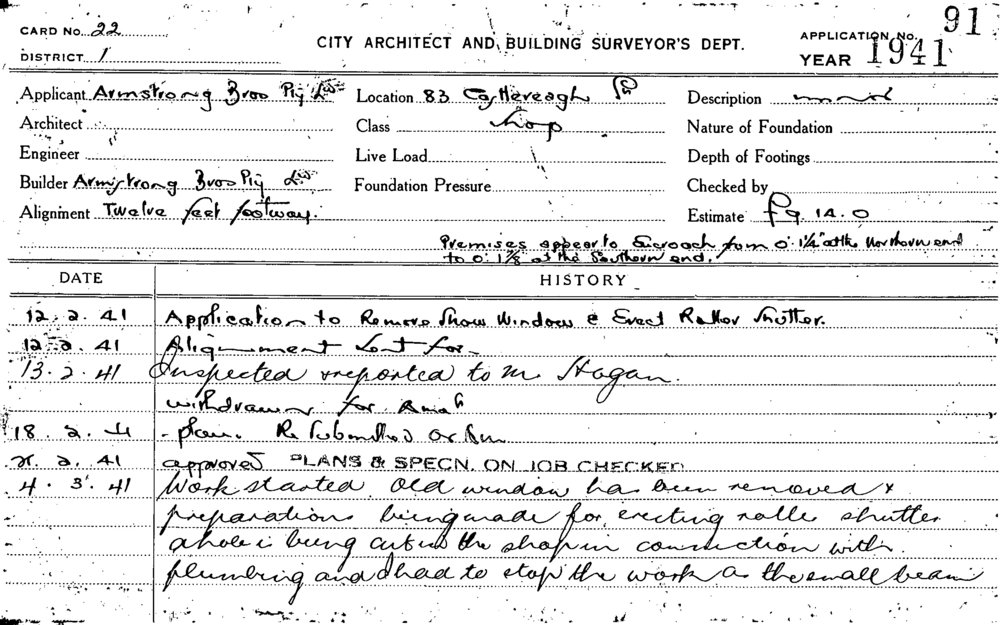 91
CARD No. 22
CITY ARCHITECT AND BUILDING SURVEYOR'S DEPT.
APPLICATION No.
DISTRICT 1
YEAR 1941
Applicant Armstrong Bros Pty Ltd
Location 83 Castlereagh St
Description
Architect
Class Shop
Nature of Foundation
Engineer
Live Load
Depth of Footings
Builder Armstrong Bros Pty Ltd
Foundation Pressure
Checked by
Alignment Twelve feet footway.
Estimate £9.14.0
Premises appear to Encroach from 0' 1¼" at the Northern end
to 0' 1⅞ at the Southern end.
DATE
HISTORY
12.2.41 Application to Remove Show Window & Erect Roller Shutter.
12.2.41 Alignment sent for
13.2.41 Inspected & reported to Mr Hogan.
withdrawn for
18.2.41 plan. Re Submitted
21.2.41 approved PLANS & SPECN. ON JOB CHECKED
4.3.41 Work started. Old window has been removed &
preparations being made for erecting roller shutter
a hole is being cut in the shop in connection with
plumbing and I had to stop the work as the small beam